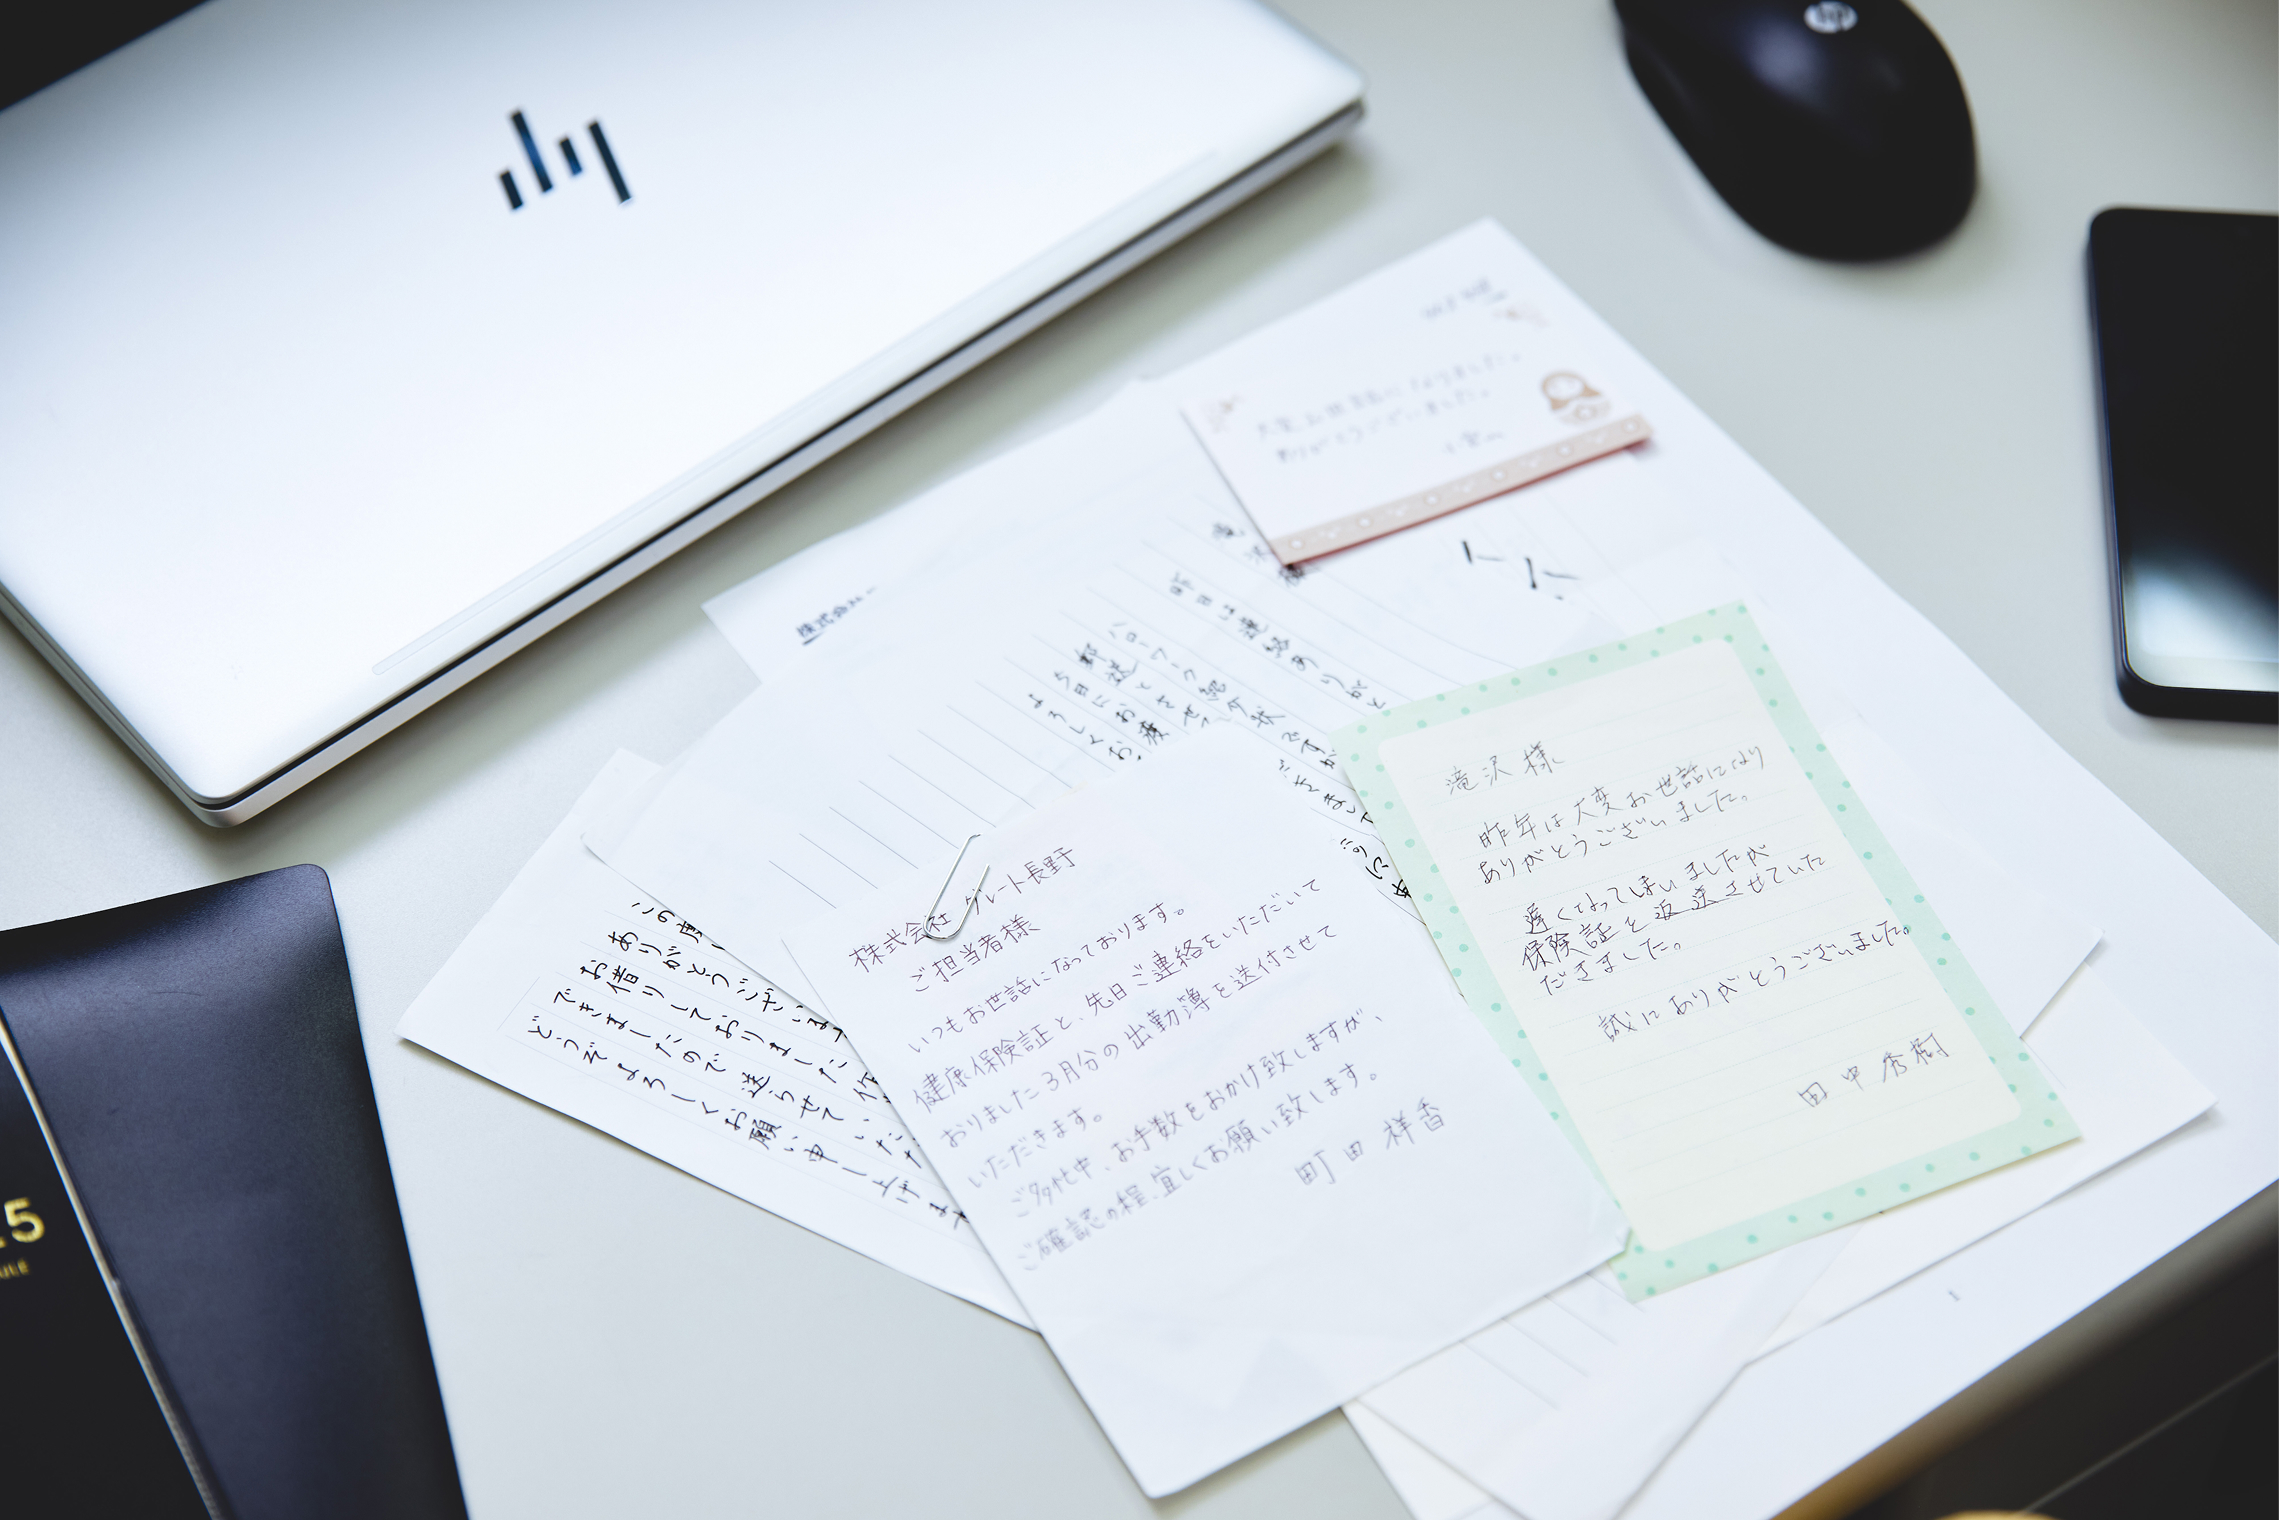 hp
大変お世話になりました。
ありがとうございました。
株式会社
滝沢様
昨日は連絡ありがと
ハローワーク紹介状ですが
郵送とさせ
5日にお渡
よろしくお
この度
ありがとうございま
お借りしておりました
できましたので送らせていただ
どうぞよろしくお願い申し上げま
株式会社 グレート長野
ご担当者様
いつもお世話になっております。
健康保険証と、先日ご連絡をいただいて
おりました3月分の出勤簿を送付させて
いただきます。
ご多忙中、お手数をおかけ致しますが、
ご確認の程、宜しくお願い致します。
町田 祥香
滝沢様
昨年は大変お世話になり
ありがとうございました。
遅くなってしまいましたが
保険証を返送させていた
だきました。
誠にありがとうございました。
田中秀樹
5